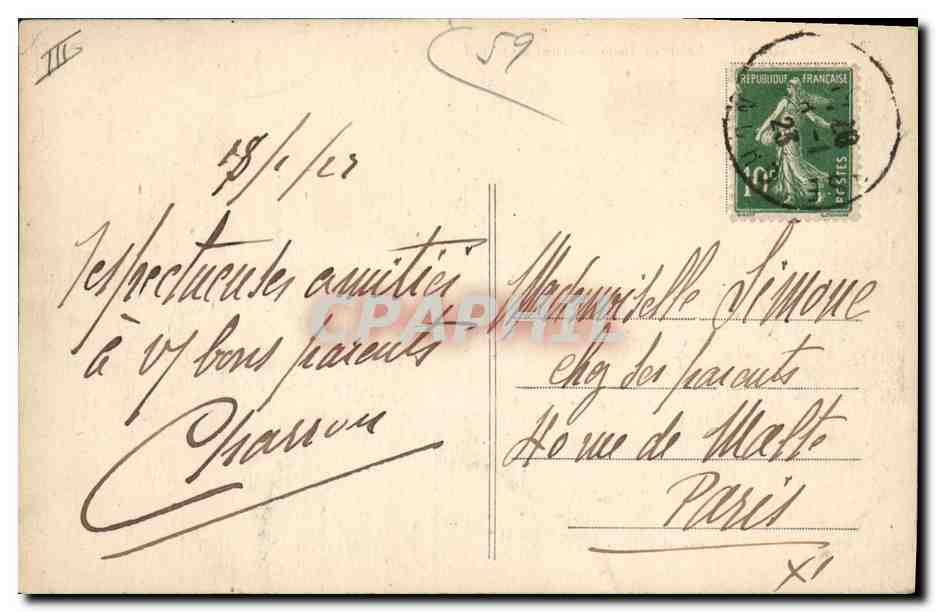 III
59
28/1/23
respectueuses amitiés
à vs bons parents
Charron
REPUBLIQUE FRANÇAISE
10
POSTES
28 -1
23
CPAPHIL
Mademoiselle Simone
chez ses parents
40 rue de Malte
Paris
XI